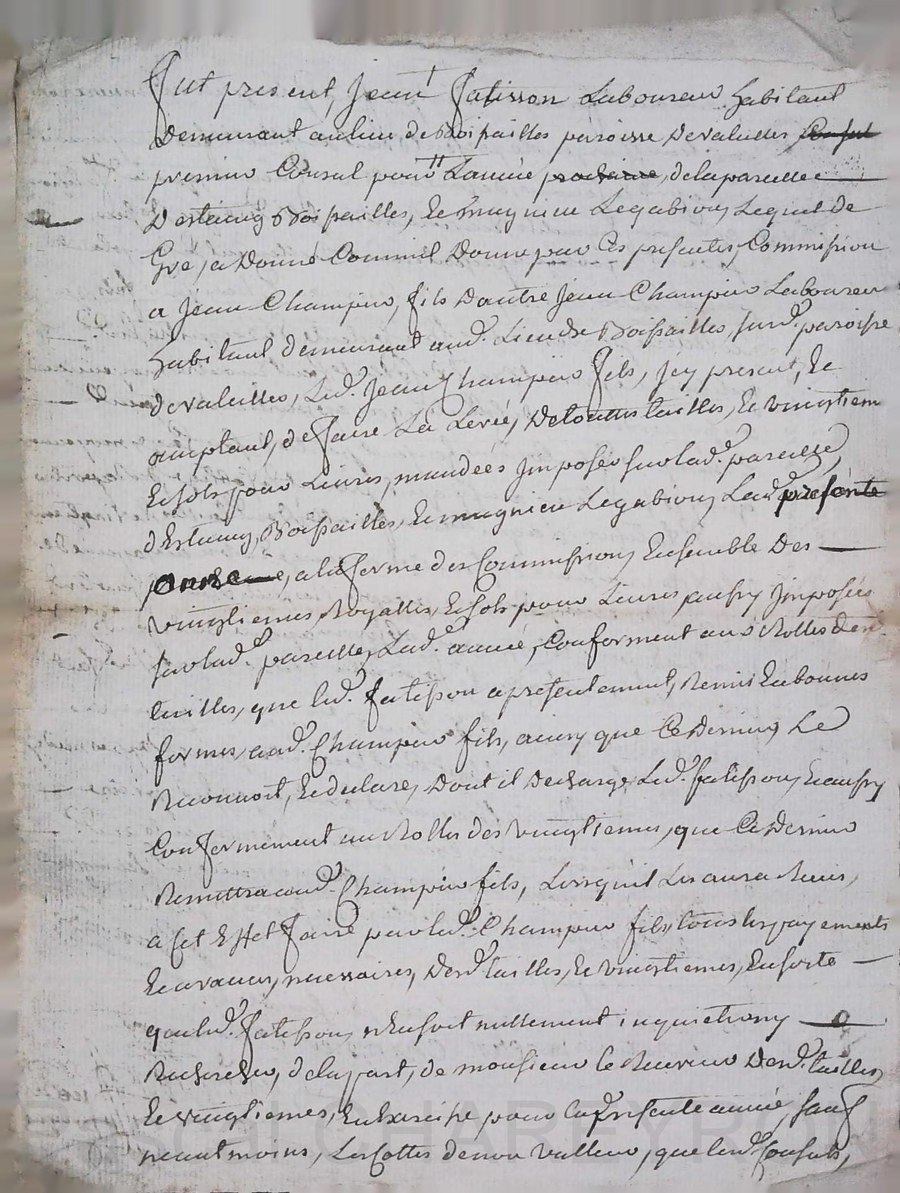 Fut present, Jean Fatisson Laboureur habitant
Demeurant au lieu de Boissailles paroisse devaleilles
premier Consul pour L'année prochaine, de la parcelle
D'estaing Boissailles, Le magnieu Legabion, Lequel de
Gré, a Donné Comme il Donne par Ces presentes, Commission
a Jean Champier, fils D'autre Jean Champier Laboureur
habitant demeurant aud. Lieu de Boissailles, surd. paroisse
devaleilles, Led. Jean Champier fils, icy present, Et
acceptant, de faire La Levée, De touttes tailles, Et vingtiem
Et sols pour Livres, mandées Imposés sur lad. parcelle,
d'Estaing, Boissailles, Le magnieu Legabion, Lad. presente
année, a la forme des Commissions, Ensemble Des
vingtiemes Royalles, Et sols pour Livres aussy Imposés
sur lad. parcelle, Lad. année, Conforment aux Rolles desd.
tailles, que led. fatisson a presentement, Remis En bonnes
formes aud. Champier fils, ainsy que Ce Dernier Le
Reconnoit, Et declare, Dont il Decharge, Led. fatisson, Et aussy
Conformement aux Rolles des vingtiemes, que Ce Dernier
Remettra aud. Champier fils, Lorsquil Les aura Receu,
a Cet Effet faire par led. Champier fils, tous les payements
Et avances, necessaires, Desd. tailles, Et vingtiemes, En sorte
que led. fatisson, n'En soit nullement inquietté ny
Recherché, de la part, de monsieur le Receveur Desd. tailles,
Et vingtiemes, En Exercice pour lad. presente année, sauf
neantmoins, Les Cottes de non valleur, que lesd. Consuls,